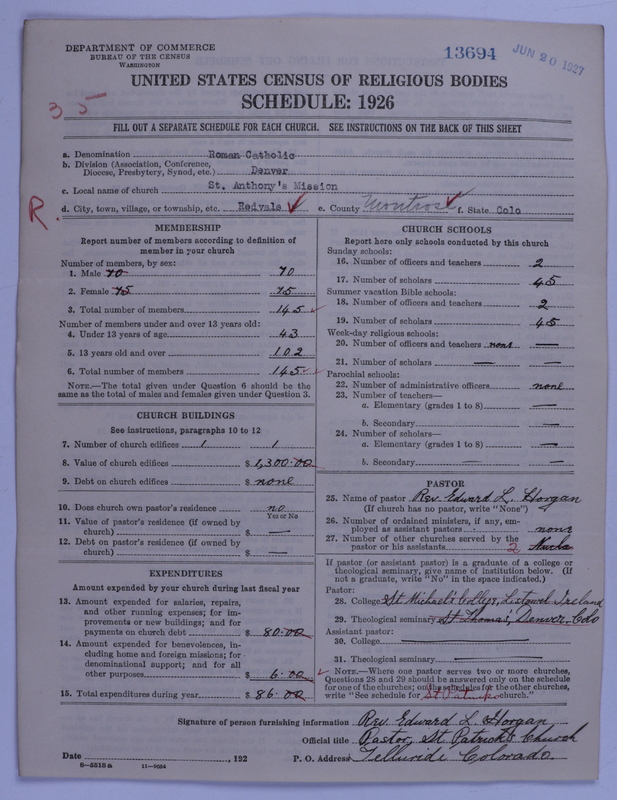 DEPARTMENT OF COMMERCE
BUREAU OF THE CENSUS
WASHINGTON
13694
JUN 20 1927
UNITED STATES CENSUS OF RELIGIOUS BODIES
SCHEDULE: 1926
35
FILL OUT A SEPARATE SCHEDULE FOR EACH CHURCH. SEE INSTRUCTIONS ON THE BACK OF THIS SHEET
a. Denomination Roman Catholic
b. Division (Association, Conference, Diocese, Presbytery, Synod, etc.) Denver
c. Local name of church St. Anthony's Mission
R
d. City, town, village, or township, etc. Redvale e. County Montrose f. State Colo
MEMBERSHIP
Report number of members according to definition of
member in your church
Number of members, by sex:
1. Male 70 70
2. Female 75 75
3. Total number of members 145
Number of members under and over 13 years old:
4. Under 13 years of age 43
5. 13 years old and over 102
6. Total number of members 145
NOTE.—The total given under Question 6 should be
same as the total of males and females given under Question 3.
CHURCH BUILDINGS
See instructions, paragraphs 10 to 12
7. Number of church edifices 1 1
8. Value of church edifices $1,300.00
9. Debt on church edifices $ none
10. Does church own pastor's residence no
Yes or No
11. Value of pastor's residence (if owned by
church) $ —
12. Debt on pastor's residence (if owned by
church) $ —
EXPENDITURES
Amount expended by your church during last fiscal year
13. Amount expended for salaries, repairs,
and other running expenses; for im-
provements or new buildings; and for
payments on church debt $ 80.00
14. Amount expended for benevolences, in-
cluding home and foreign missions; for
denominational support; and for all
other purposes $ 6.00
15. Total expenditures during year $ 86.00
CHURCH SCHOOLS
Report here only schools conducted by this church
Sunday schools:
16. Number of officers and teachers 2
17. Number of scholars 45
Summer vacation Bible schools:
18. Number of officers and teachers 2
19. Number of scholars 45
Week-day religious schools:
20. Number of officers and teachers none —
21. Number of scholars — —
Parochial schools:
22. Number of administrative officers none
23. Number of teachers—
a. Elementary (grades 1 to 8) —
b. Secondary —
24. Number of scholars—
a. Elementary (grades 1 to 8) —
b. Secondary — —
PASTOR
25. Name of pastor Rev. Edward L. Horgan
(If church has no pastor, write "None")
26. Number of ordained ministers, if any, em-
ployed as assistant pastors none
27. Number of other churches served by the
pastor or his assistants 2
If pastor (or assistant pastor) is a graduate of a college or
theological seminary, give name of institution below. (If
not a graduate, write "No" in the space indicated.)
Pastor:
28. College St Michael's College, Listowel Ireland
29. Theological seminary St Thomas', Denver Colo
Assistant pastor:
30. College
31. Theological seminary
NOTE.—Where one pastor serves two or more churches,
Questions 28 and 29 should be answered only on the schedule
for one of the churches; on the schedules for the other churches,
write "See schedule for St Patrick's church."
Signature of person furnishing information Rev. Edward L. Horgan
Official title Pastor, St Patrick's Church
Date , 192 P. O. Address Telluride Colorado.
8-5515a 11-9054